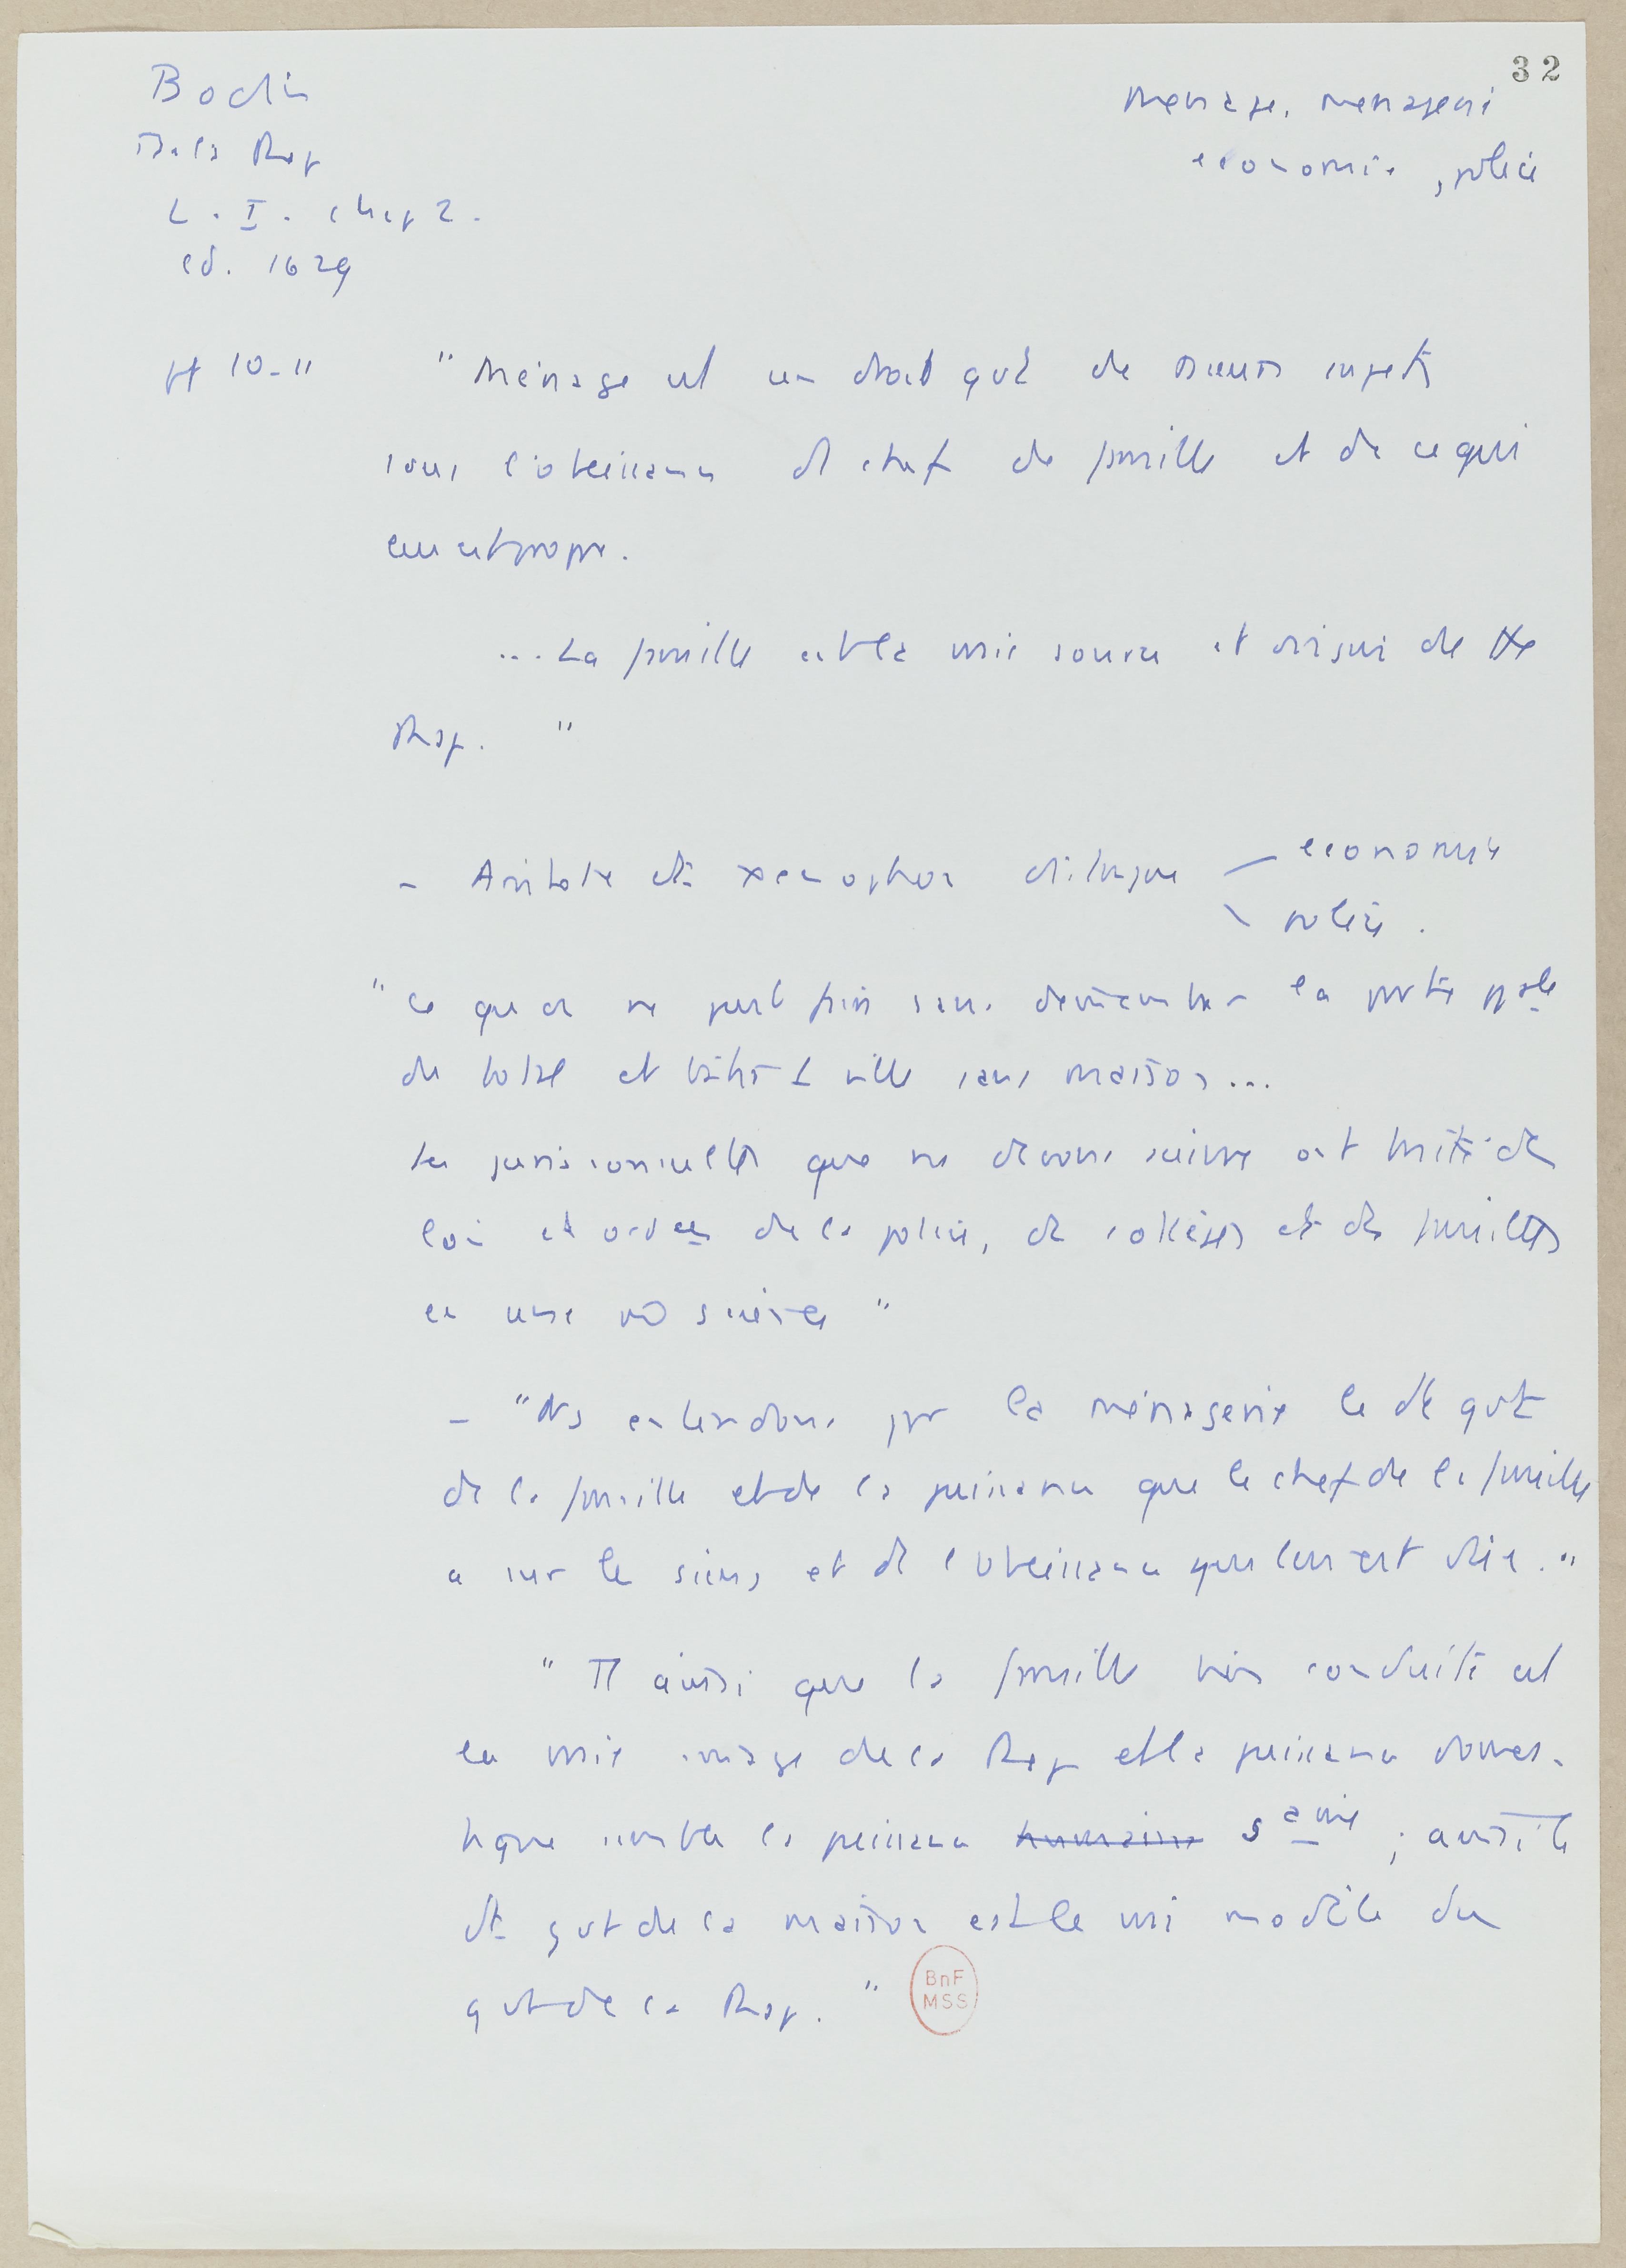 32
Bodin
De la Rep
L. I. chap 2.
ed. 1629
Menage, menagerie
economie, police
pp 10-11
"Ménage est un droit gvt de plusieurs sujets
sous l'obeissance d'1 chef de famille et de ce qui
lui est propre.
... La famille est la vraie source et origine de tte
Rep. "
- Aristote et Xenophon distingue
economie
police.
"ce qu'on ne peut faire sans demembrer la partie ppale
du total et bâtir 1 ville sans maisons...
Les jurisconsultes que ns devons suivre ont traité des
lois et ordces de la police, des collèges et des familles
en une mm science "
- "Ns entendons par la ménagerie le dt gvt
de la famille et de la puissance que le chef de la famille
a sur les siens et de l'obeissance qui leur est due."
"Tt ainsi que la famille bien conduite est
la vraie image de la Rep et la puissance domes-
tique semble la puissance humaine saine ; aussi le
dt gvt de la maison est le vrai modèle du
gvt de la Rep. "
BnF
MSS